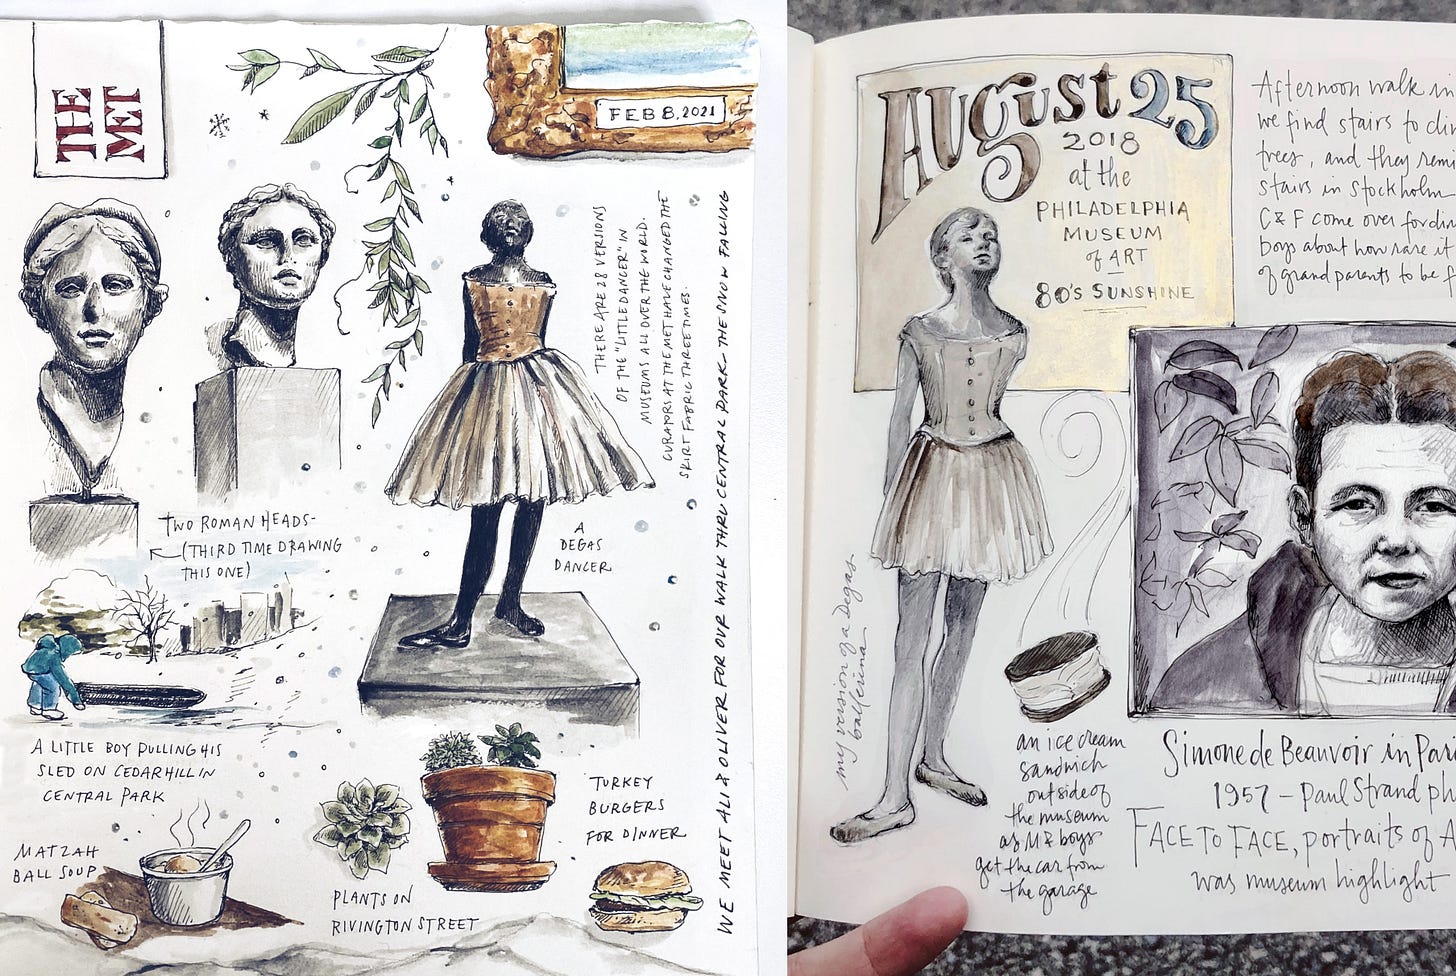 THE
MET
FEB 8, 2021
THERE ARE 28 VERSIONS
OF THE "LITTLE DANCER" IN
MUSEUMS ALL OVER THE WORLD.
CURATORS AT THE MET HAVE CHANGED THE
SKIRT FABRIC THREE TIMES.
WE MEET ALI & OLIVER FOR OUR WALK THRU CENTRAL PARK - THE SNOW FALLING
TWO ROMAN HEADS-
(THIRD TIME DRAWING
THIS ONE)
A
DEGAS
DANCER
A LITTLE BOY PULLING HIS
SLED ON CEDAR HILL IN
CENTRAL PARK
MATZAH
BALL SOUP
PLANTS ON
RIVINGTON STREET
TURKEY
BURGERS
FOR DINNER
August 25
2018
at the
PHILADELPHIA
MUSEUM
of ART
80's SUNSHINE
Afternoon walk in
we find stairs to
trees, and they
stairs in Stockholm
C & F come over for
boys about how rare it
of grandparents to be
my version of a Degas
ballerina
an ice cream
sandwich
outside of
the museum
as M & boys
get the car from
the garage
Simone de Beauvoir in
1957 - Paul Strand
FACE TO FACE, portraits of
was museum highlight